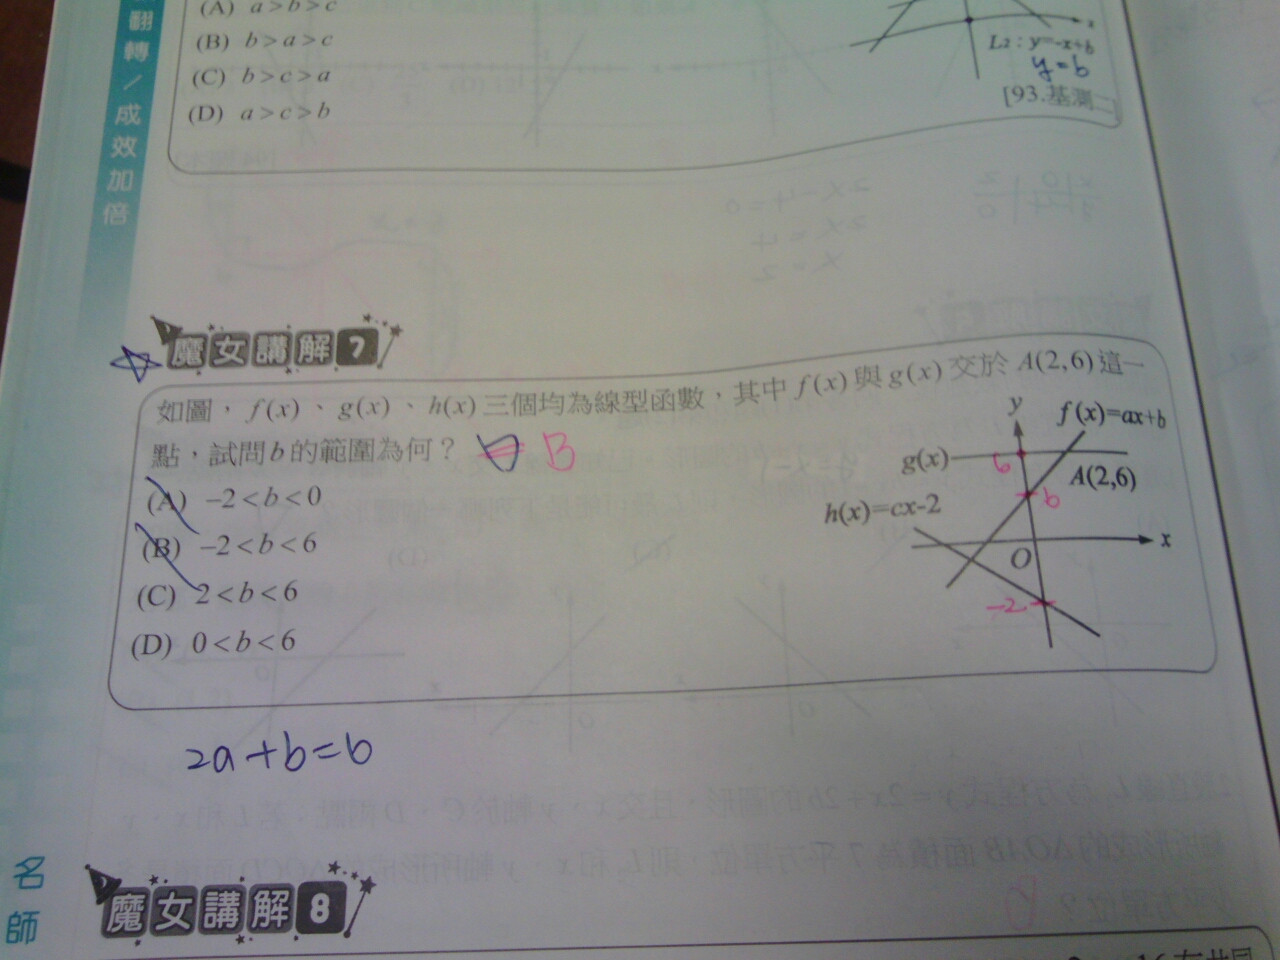 翻轉／成效加倍
(A) a>b>c
(B) b>a>c
(C) b>c>a
(D) a>c>b
x
L2：y=-x+b
y=b
[93.基測二]
魔女講解 7
如圖，f(x)、g(x)、h(x)三個均為線型函數，其中f(x)與g(x)交於A(2,6)這一
點，試問b的範圍為何？ B
(A) -2<b<0
(B) -2<b<6
(C) 2<b<6
(D) 0<b<6
y
f(x)=ax+b
g(x)
6
A(2,6)
h(x)=cx-2
b
x
O
-2
2a+b=6
名師
魔女講解 8